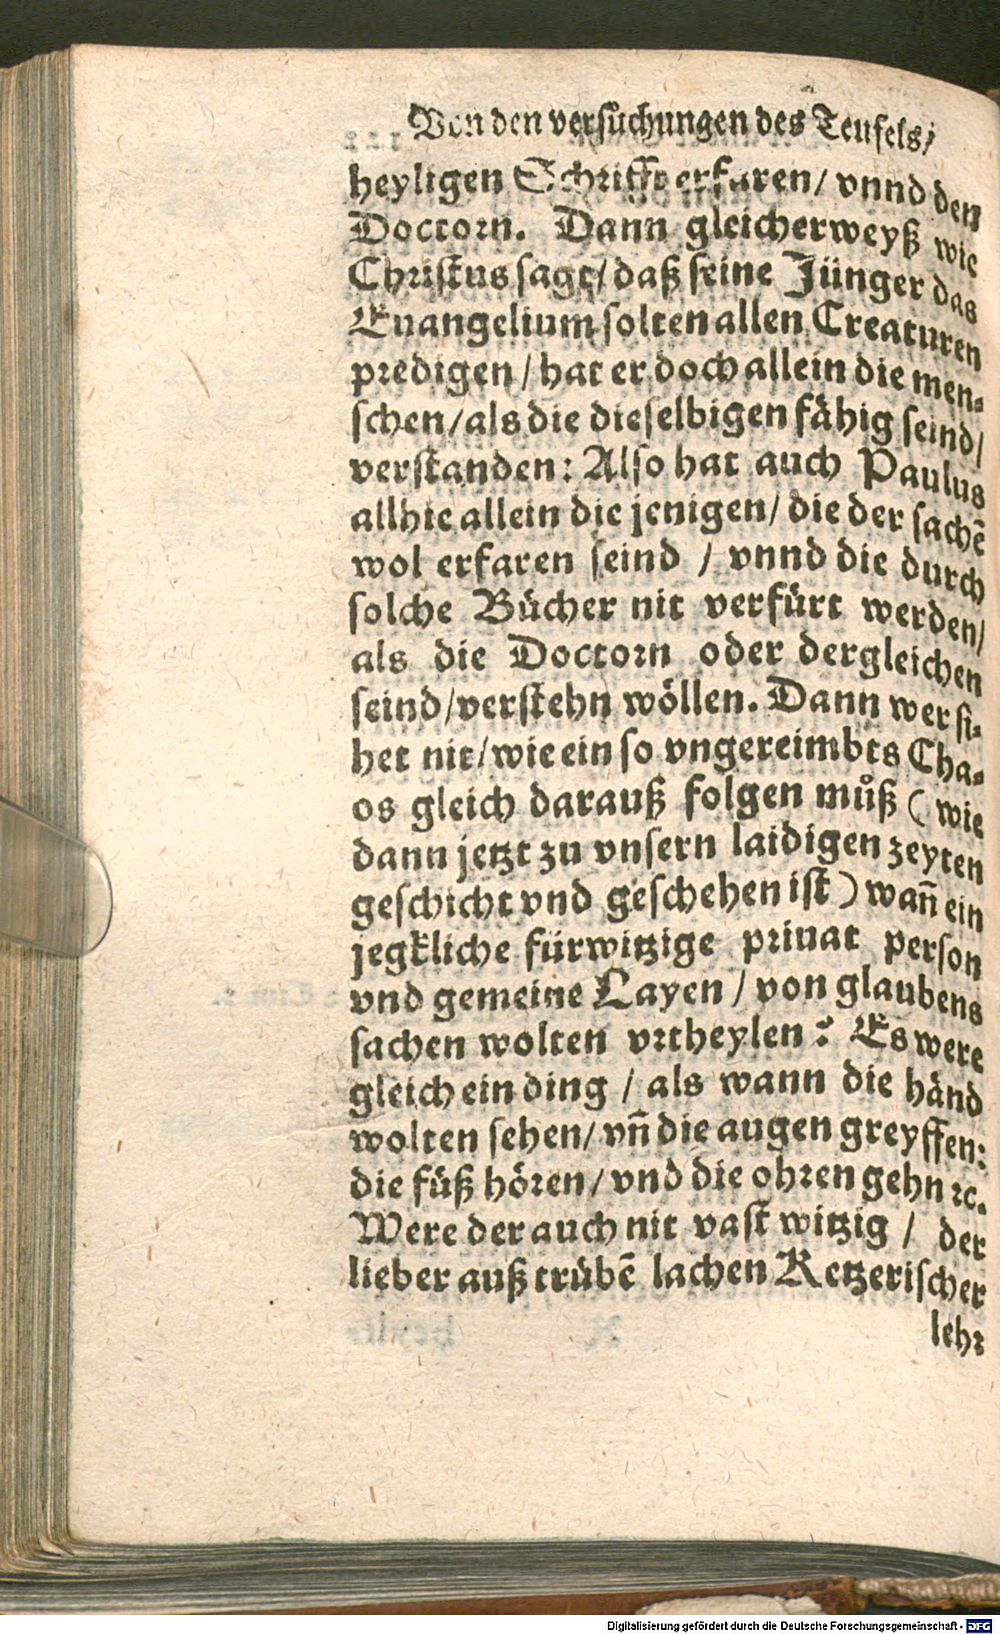 Von den versuchungen des Teufels/
heyligen Schrifft erfaren/ vnnd den
Doctorn. Dann gleicherweyß wie
Christus sagt/ daß seine Jünger das
Euangelium solten allen Creaturen
predigen / hat er doch allein die men-
schen/ als die dieselbigen fähig seind/
verstanden: Also hat auch Paulus
allhie allein die jenigen/ die der sachē
wol erfaren seind / vnnd die durch
solche Bücher nit verfürt werden/
als die Doctorn oder dergleichen
seind/verstehn wöllen. Dann wer si-
het nit/ wie ein so vngereimbts Cha-
os gleich darauß folgen můß ( wie
dann jetzt zu vnsern laidigen zeyten
geschicht vnd geschehen ist ) wañ ein
jegkliche fürwitzige priuat person
vnd gemeine Layen / von glaubens
sachen wolten vrtheylen? Es were
gleich ein ding / als wann die händ
wolten sehen/ vñ die augen greyffen:
die füß hören/ vnd die ohren gehn ꝛc.
Were der auch nit vast witzig / der
lieber auß trübē lachen Ketzerischer
lehr
Digitalisierung gefördert durch die Deutsche Forschungsgemeinschaft - DFG